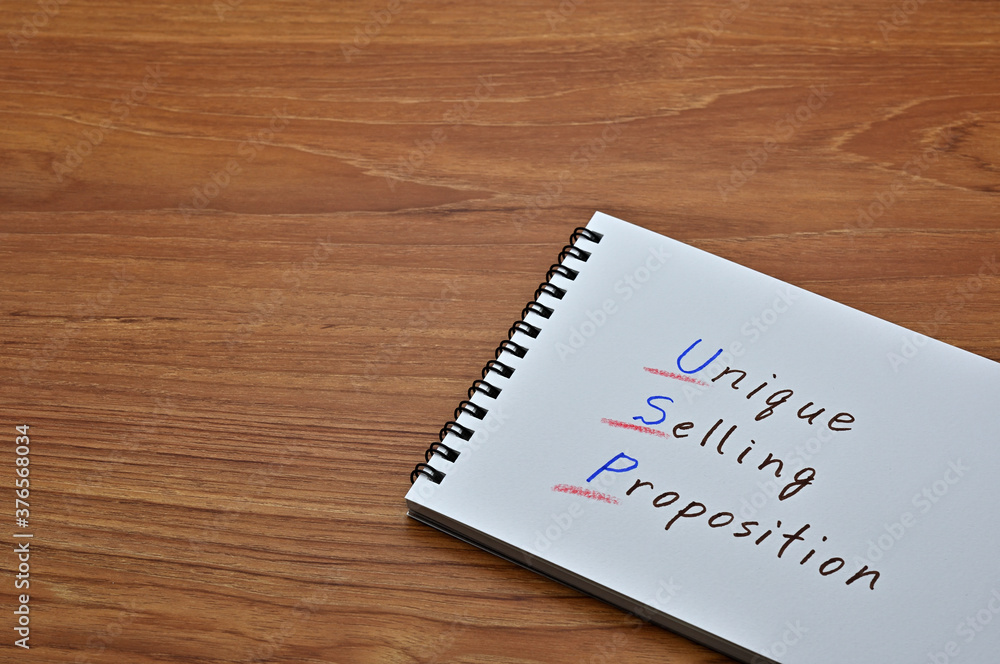 Unique
Selling
Proposition
Adobe Stock | #376568034